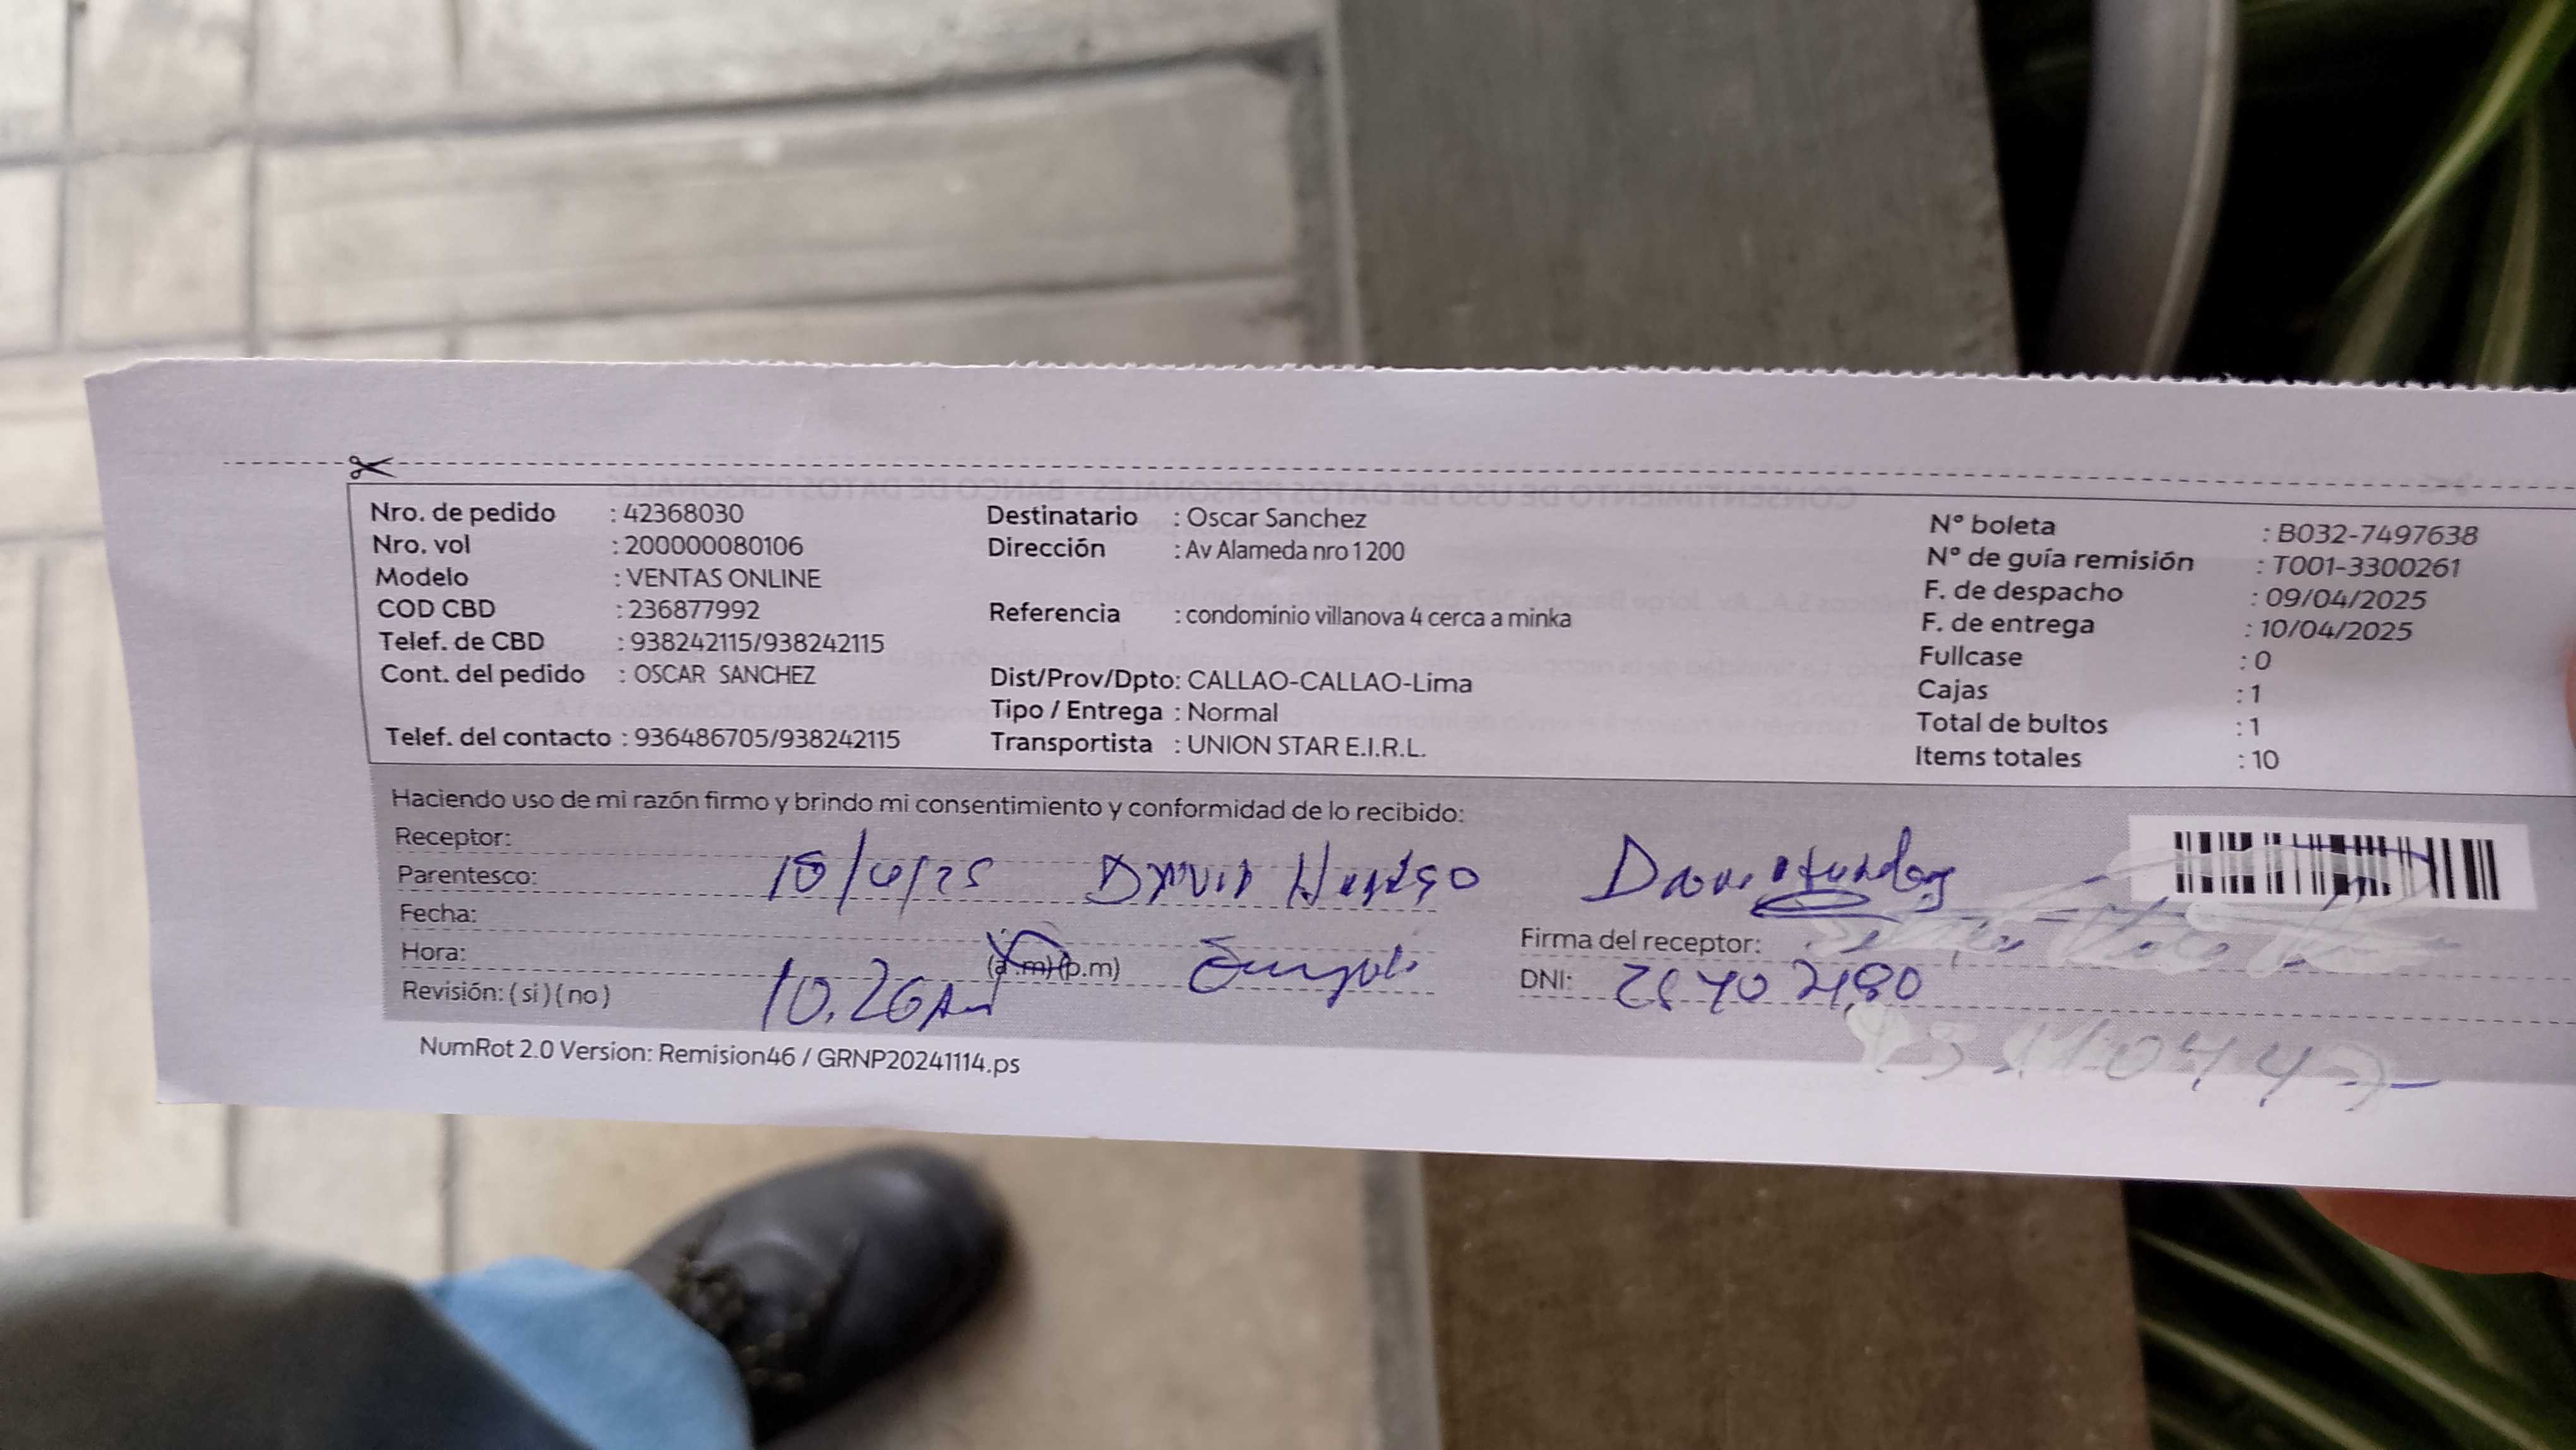 Nro. de pedido : 42368030
Nro. vol : 200000080106
Modelo : VENTAS ONLINE
COD CBD : 236877992
Telef. de CBD : 938242115/938242115
Cont. del pedido : OSCAR SANCHEZ
Telef. del contacto : 936486705/938242115
Destinatario : Oscar Sanchez
Dirección : Av Alameda nro 1200
Referencia : condominio villanova 4 cerca a minka
Dist/Prov/Dpto: CALLAO-CALLAO-Lima
Tipo / Entrega : Normal
Transportista : UNION STAR E.I.R.L.
N° boleta : B032-7497638
N° de guía remisión : T001-3300261
F. de despacho : 09/04/2025
F. de entrega : 10/04/2025
Fullcase : 0
Cajas : 1
Total de bultos : 1
Items totales : 10
Haciendo uso de mi razón firmo y brindo mi consentimiento y conformidad de lo recibido:
Receptor:
Parentesco: David
Fecha:
Hora: 10.26 Am (a.m)(p.m)
Revisión: (si) (no)
Firma del receptor:
DNI:
NumRot 2.0 Version: Remision46 / GRNP20241114.ps